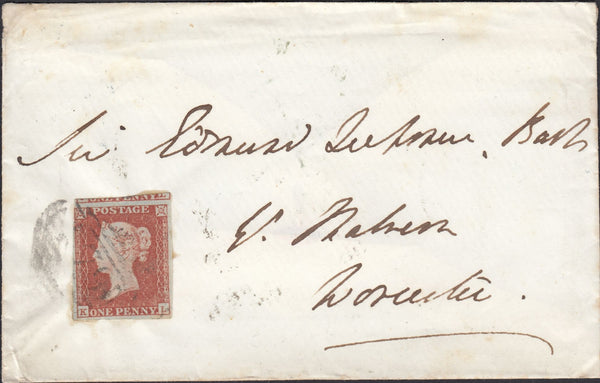 Sir Edmund Lechmere, Bart
Gt. Malvern
Worcester.
ONE PENNY
POSTAGE
K ONE PENNY L